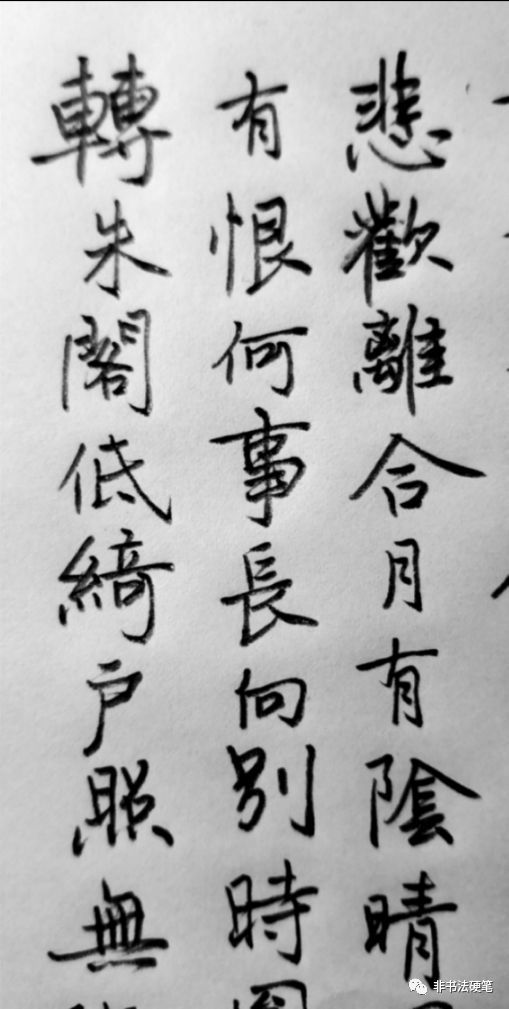 悲歡離合月有陰晴
有恨何事長向別時
轉朱閣低綺户照無
非书法硬笔